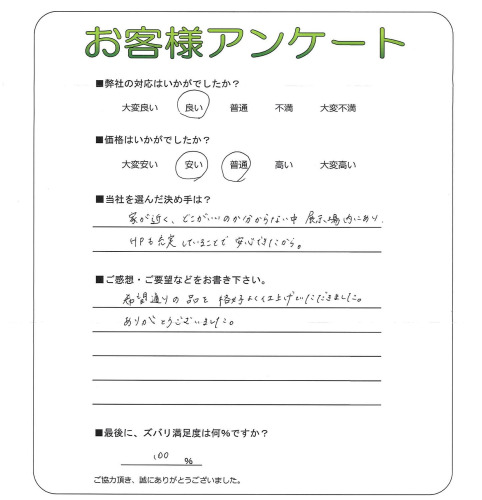 お客様アンケート
■弊社の対応はいかがでしたか？
大変良い　良い　普通　不満　大変不満
■価格はいかがでしたか？
大変安い　安い　普通　高い　大変高い
■当社を選んだ決め手は？
家が近く、どこがいいのか分からない中 展示場内にあり、
HPも充実していることで 安心できたから。
■ご感想・ご要望などをお書き下さい。
希望通りの品を 格好よく仕上げていただきました。
ありがとうございました。
■最後に、ズバリ満足度は何%ですか？
100 %
ご協力頂き、誠にありがとうございました。